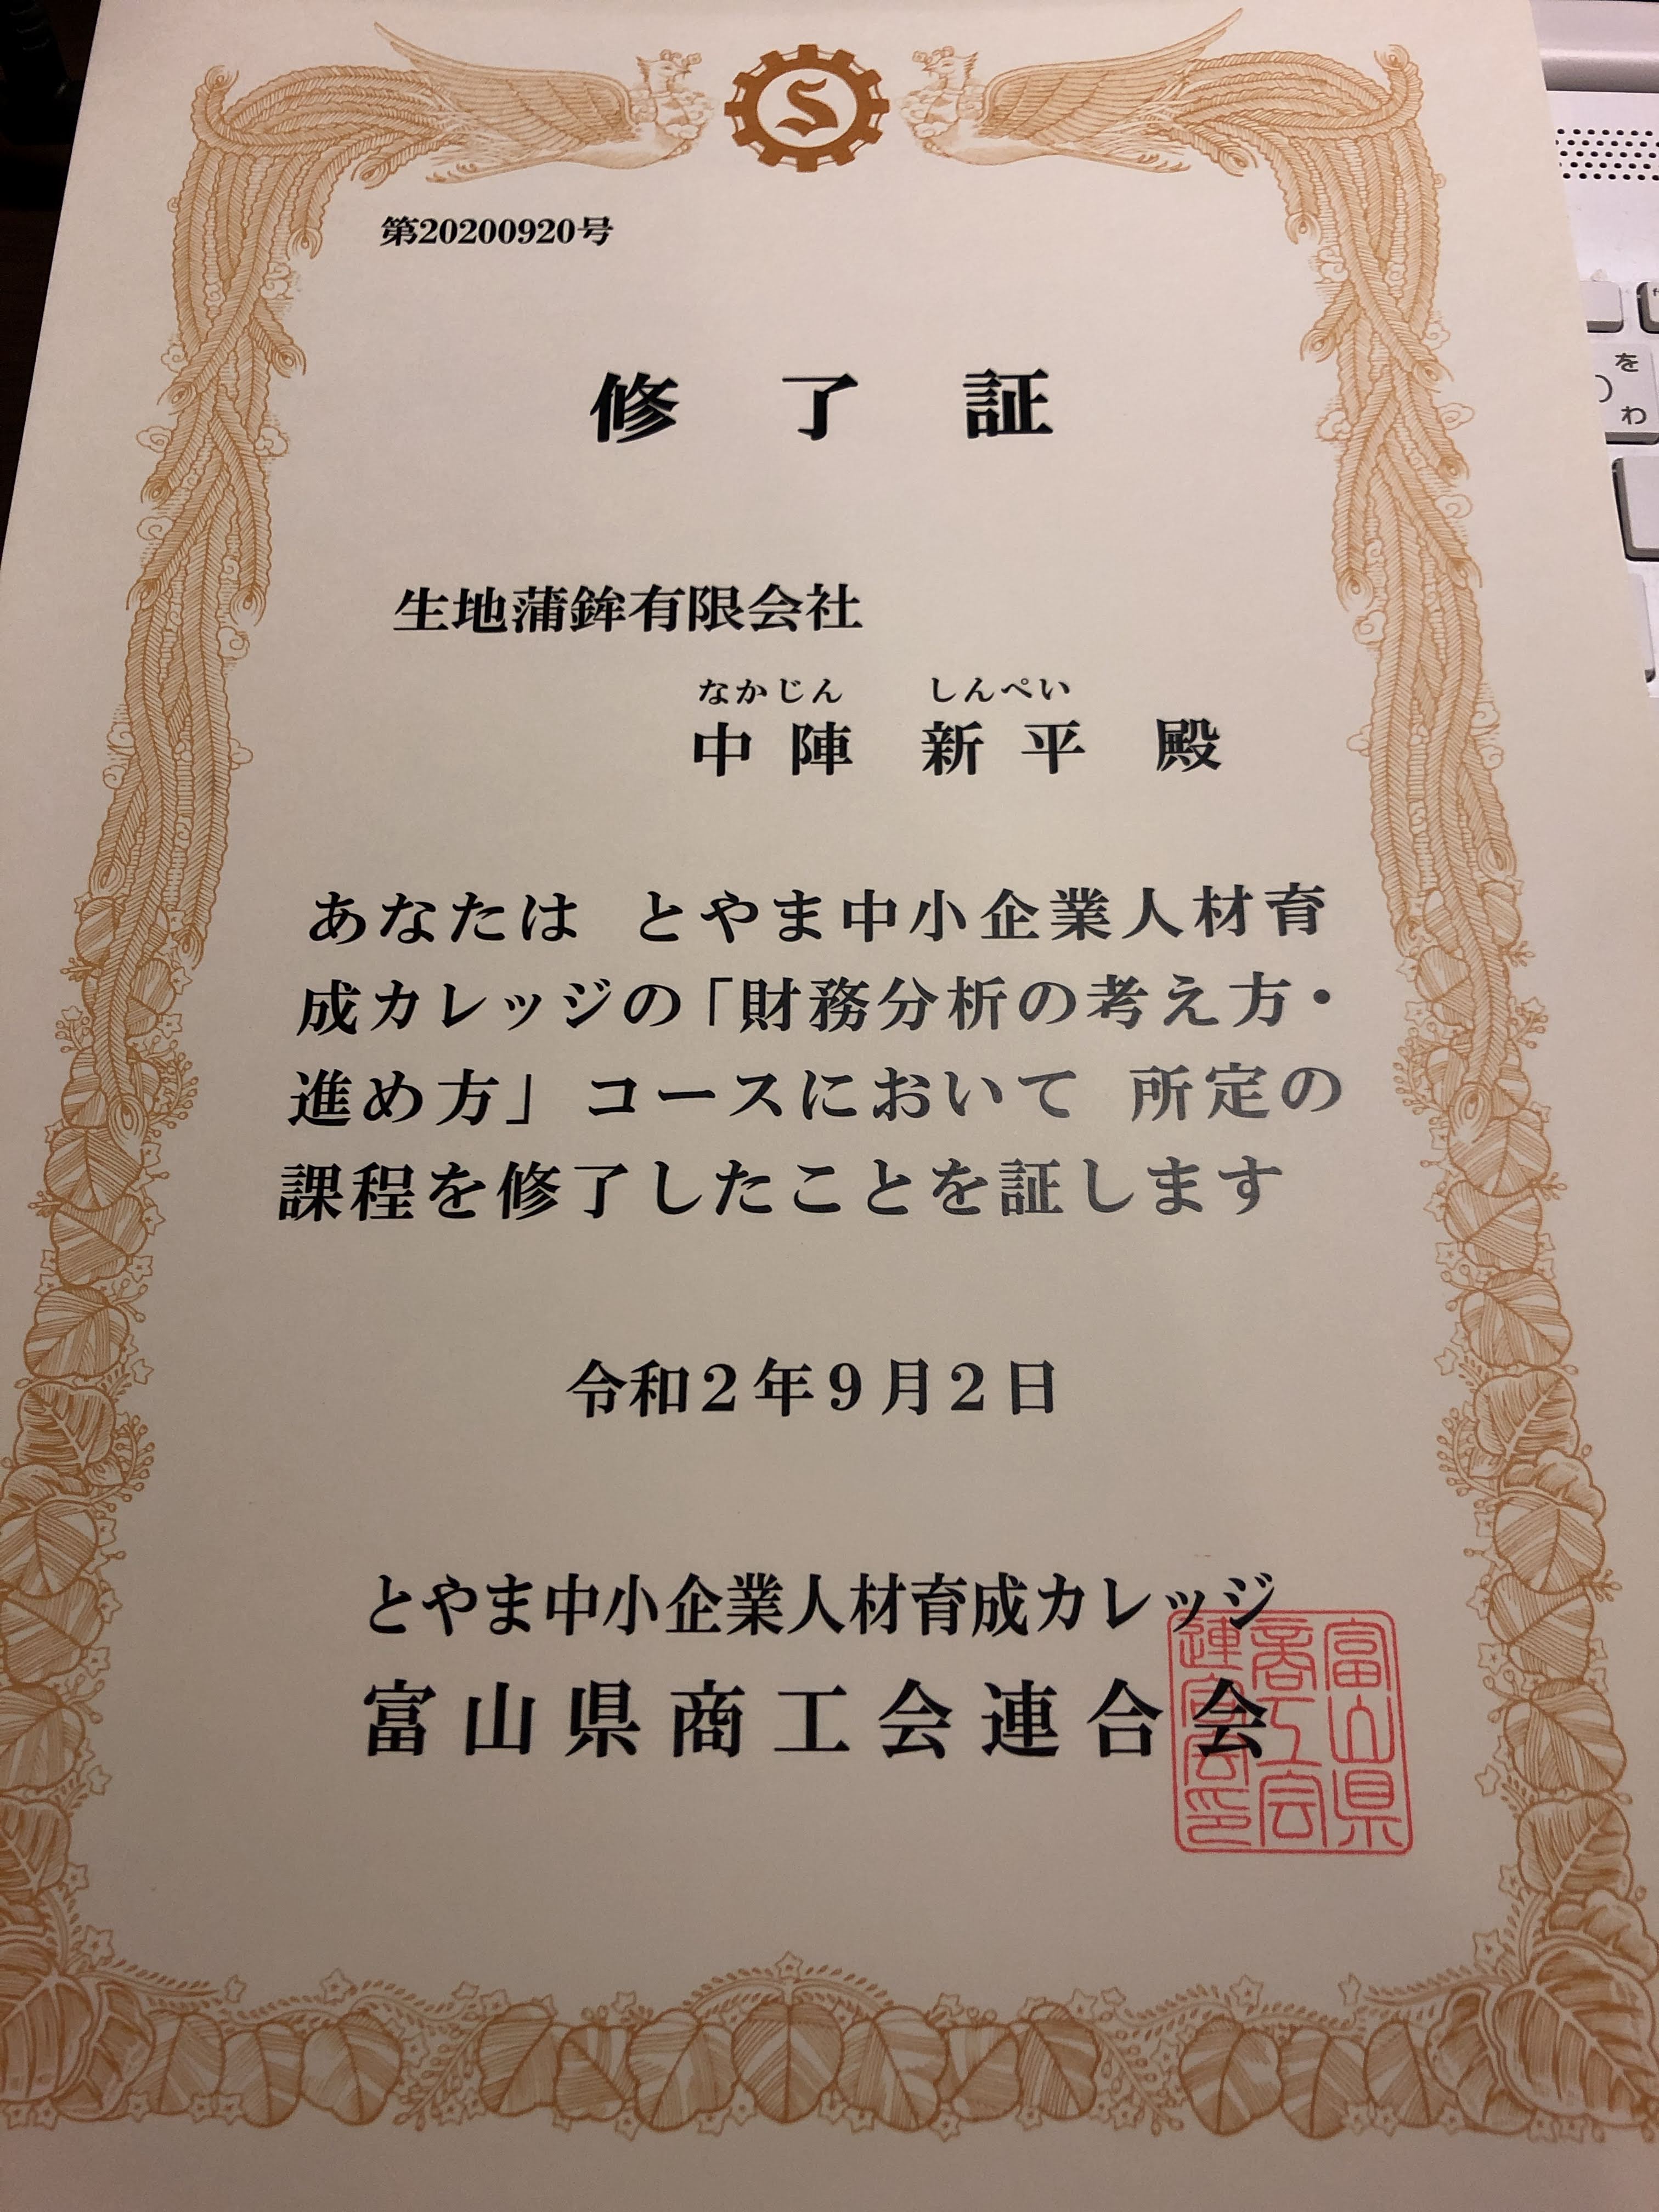 S
第20200920号
修了証
生地蒲鉾有限会社
なかじん しんぺい
中陣 新平 殿
あなたは とやま中小企業人材育
成カレッジの「財務分析の考え方・
進め方」コースにおいて 所定の
課程を修了したことを証します
令和2年9月2日
とやま中小企業人材育成カレッジ
富山県商工会連合会
富山県
商工会
連合会印
を
わ